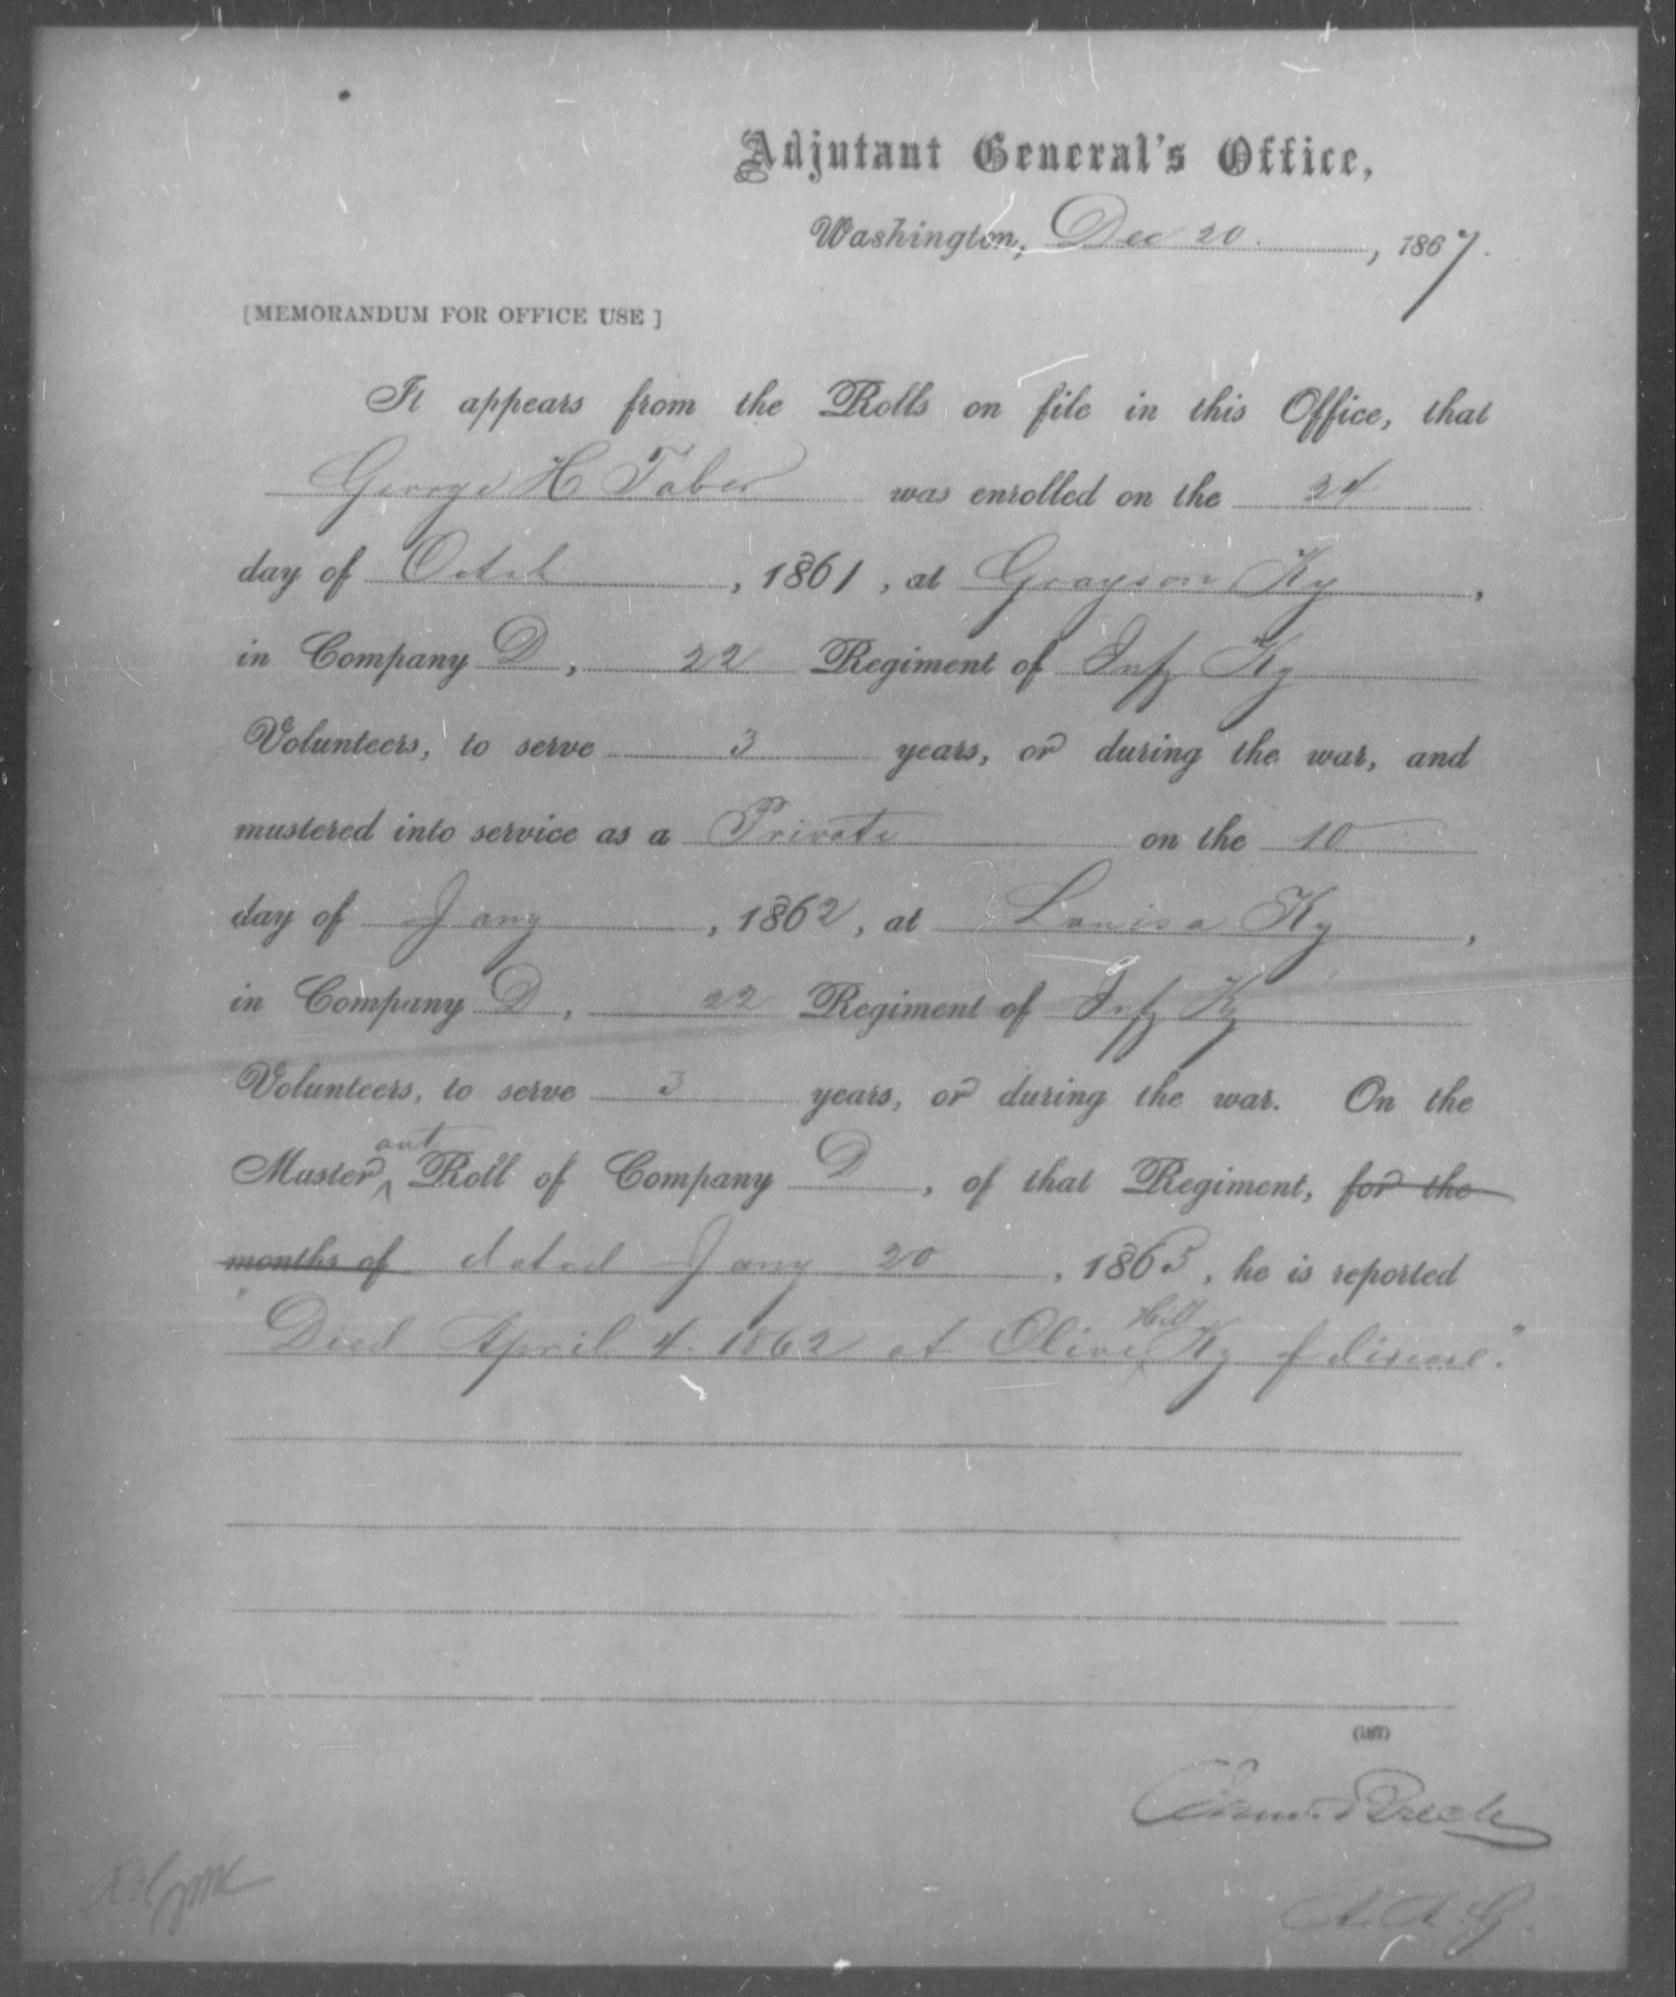 Adjutant General's Office,
Washington, Dec 20, 1867.
[MEMORANDUM FOR OFFICE USE]
It appears from the Rolls on file in this Office, that
George H Taber was enrolled on the 24
day of Octob, 1861, at Grayson Ky,
in Company D, 22 Regiment of Infy Ky
Volunteers, to serve 3 years, or during the war, and
mustered into service as a Private on the 10
day of Jany, 1862, at Louisa Ky,
in Company D, 22 Regiment of Infy Ky
Volunteers, to serve 3 years, or during the war. On the
Muster out Roll of Company D, of that Regiment, for the
months of dated Jany 20, 1865, he is reported
"Died April 4. 1862 at Olive Hill Ky of disease."
(187)
A. A. G.